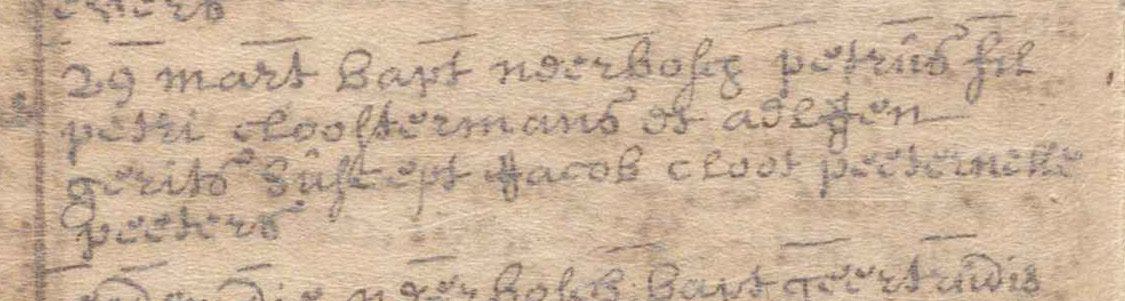 peeters
29 mart bapt nderbosch petrus fil
petri cloostermans et adlhen
gerits suscept Jacob cloot peeterneke
peeters
eodem die nderbosch bapt geertrudis